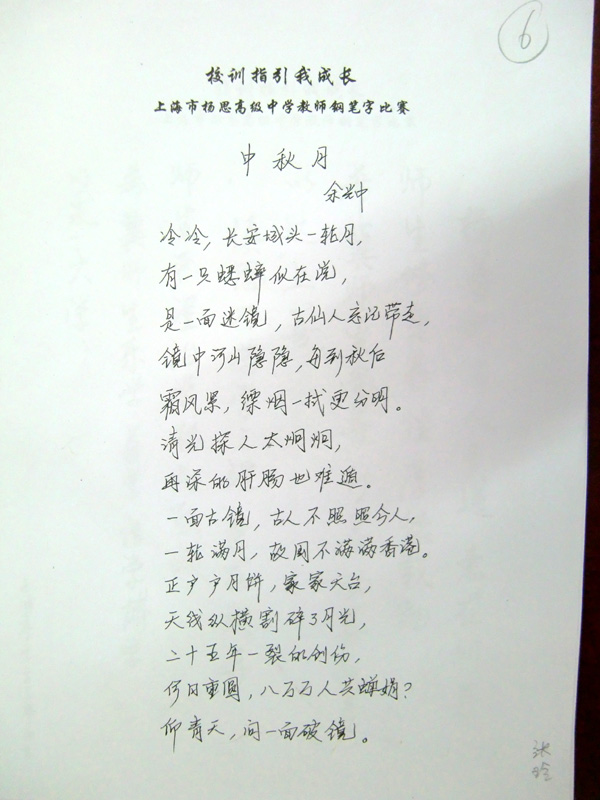 6
校训指引我成长
上海市杨思高级中学教师钢笔字比赛
中秋月
余光中
冷冷，长安城头一轮月，
有一只蟋蟀似在说，
是一面迷镜，古仙人忘记带走，
镜中河山隐隐，每到秋后
霜风紧，缥烟一拭更分明。
清光探人太炯炯，
再深的肝肠也难遁。
一面古镜，古人不照照今人，
一轮满月，故国不满满香港。
正户户月饼，家家天台，
天线纵横割碎了月光，
二十五年一裂的创伤，
何日重圆，八万万人共婵娟？
仰青天，问一面破镜。